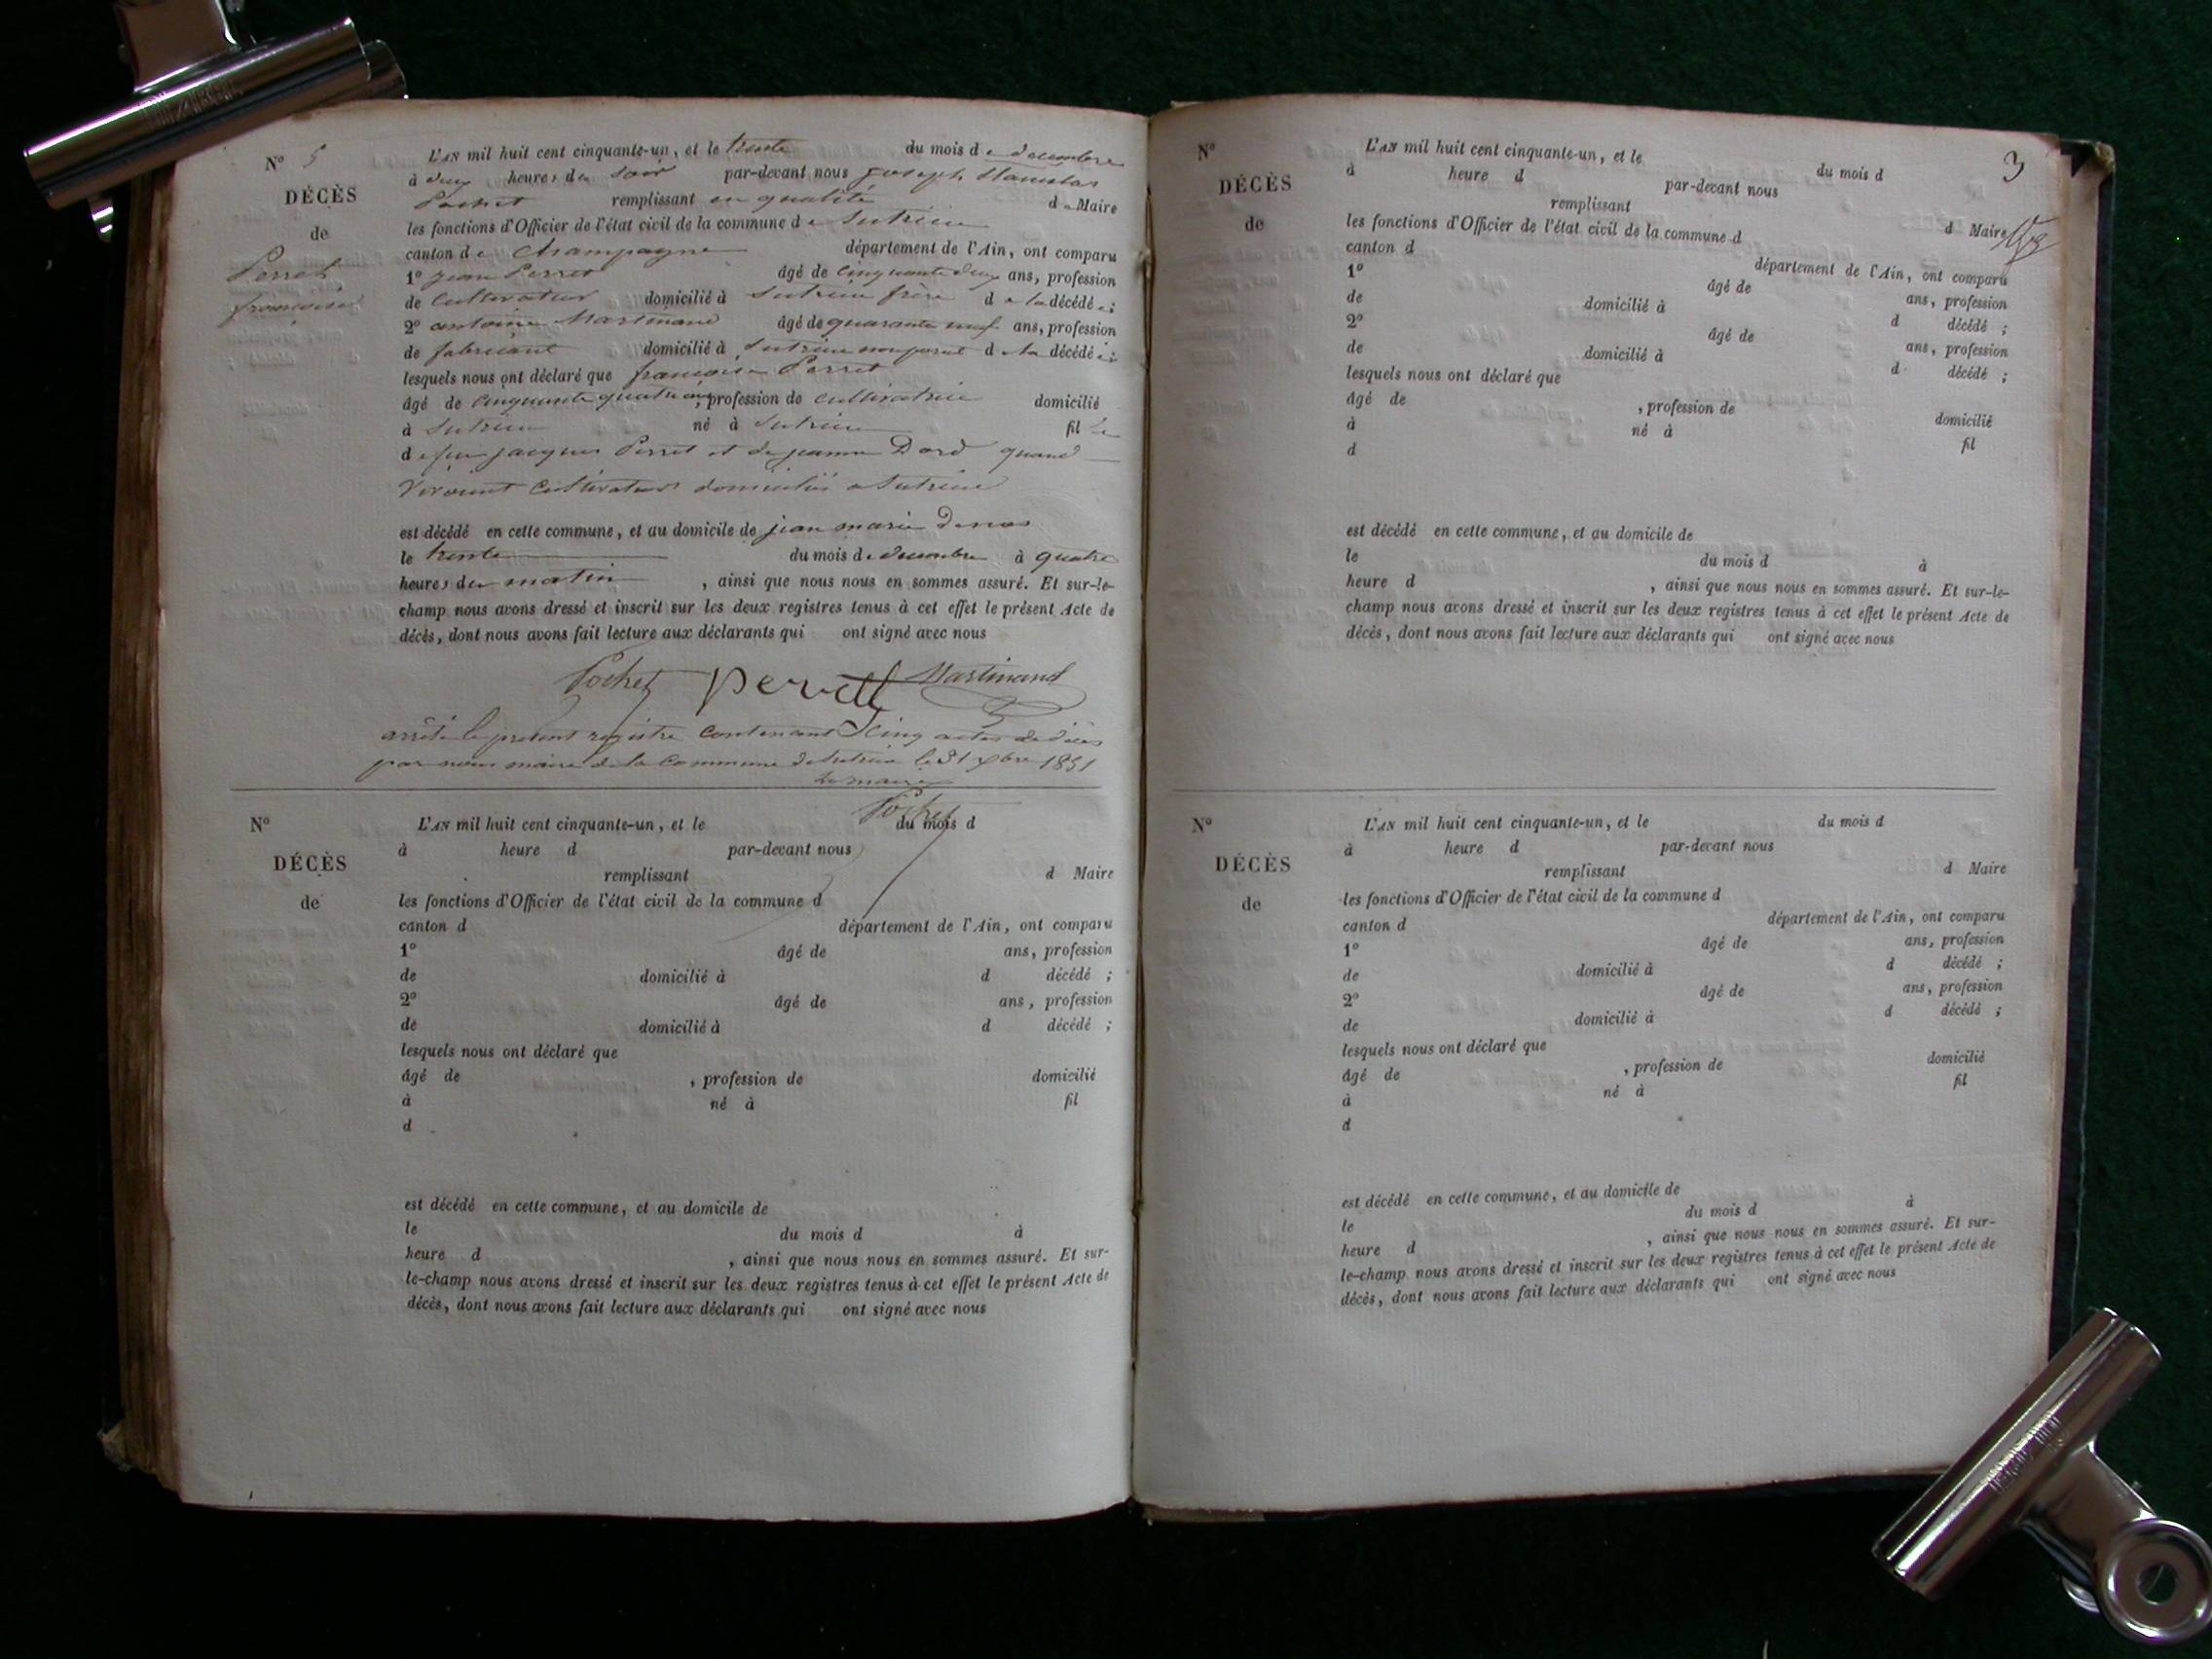 N° 5
DÉCÈS
de
Perret
françoise
L'AN mil huit cent cinquante-un, et le trente du mois de decembre
à deux heures du soir par-devant nous joseph Stanislas
Pochet remplissant en qualité de Maire
les fonctions d'Officier de l'état civil de la commune de Sutrieu
canton de Champagne département de l'Ain, ont comparu
1° jean Perret âgé de cinquante deux ans, profession
de cultivateur domicilié à Sutrieu frère de la décédée;
2° antoine Martinand âgé de quarante neuf ans, profession
de fabricant domicilié à Sutrieu non parent de la décédée;
lesquels nous ont déclaré que françoise Perret
âgé de cinquante quatre ans, profession de cultivatrice domicilié
à Sutrieu né à Sutrieu fille
de feu jacques Perret et de jeanne Dord quand
vivaient cultivateurs domiciliés a Sutrieu
est décédé en cette commune, et au domicile de jean marie
le trente du mois de decembre à quatre
heures du matin, ainsi que nous nous en sommes assuré. Et sur-le-
champ nous avons dressé et inscrit sur les deux registres tenus à cet effet le présent Acte de
décès, dont nous avons fait lecture aux déclarants qui ont signé avec nous
Pochet perrett Martinand
arrêté le present registre contenant cinq actes de décès
par nous maire de la commune de Sutrieu le 31 xbre 1851
le maire
Pochet
N°
DÉCÈS
de
L'AN mil huit cent cinquante-un, et le du mois d
à heure d par-devant nous
remplissant d Maire
les fonctions d'Officier de l'état civil de la commune d
canton d département de l'Ain, ont comparu
1° âgé de ans, profession
de domicilié à d décédé ;
2° âgé de ans, profession
de domicilié à d décédé ;
lesquels nous ont déclaré que
âgé de , profession de domicilié
à né à fil
d
est décédé en cette commune, et au domicile de
le du mois d à
heure d , ainsi que nous nous en sommes assuré. Et sur-
le-champ nous avons dressé et inscrit sur les deux registres tenus à cet effet le présent Acte de
décès, dont nous avons fait lecture aux déclarants qui ont signé avec nous
3
N°
DÉCÈS
de
L'AN mil huit cent cinquante-un, et le du mois d
à heure d par-devant nous
remplissant d Maire
les fonctions d'Officier de l'état civil de la commune d
canton d département de l'Ain, ont comparu
1° âgé de ans, profession
de domicilié à d décédé ;
2° âgé de ans, profession
de domicilié à d décédé ;
lesquels nous ont déclaré que
âgé de , profession de domicilié
à né à fil
d
est décédé en cette commune, et au domicile de
le du mois d à
heure d , ainsi que nous nous en sommes assuré. Et sur-le-
champ nous avons dressé et inscrit sur les deux registres tenus à cet effet le présent Acte de
décès, dont nous avons fait lecture aux déclarants qui ont signé avec nous
N°
DÉCÈS
de
L'AN mil huit cent cinquante-un, et le du mois d
à heure d par-devant nous
remplissant d Maire
les fonctions d'Officier de l'état civil de la commune d
canton d département de l'Ain, ont comparu
1° âgé de ans, profession
de domicilié à d décédé ;
2° âgé de ans, profession
de domicilié à d décédé ;
lesquels nous ont déclaré que
âgé de , profession de domicilié
à né à fil
d
est décédé en cette commune, et au domicile de
le du mois d à
heure d , ainsi que nous nous en sommes assuré. Et sur-
le-champ nous avons dressé et inscrit sur les deux registres tenus à cet effet le présent Acte de
décès, dont nous avons fait lecture aux déclarants qui ont signé avec nous